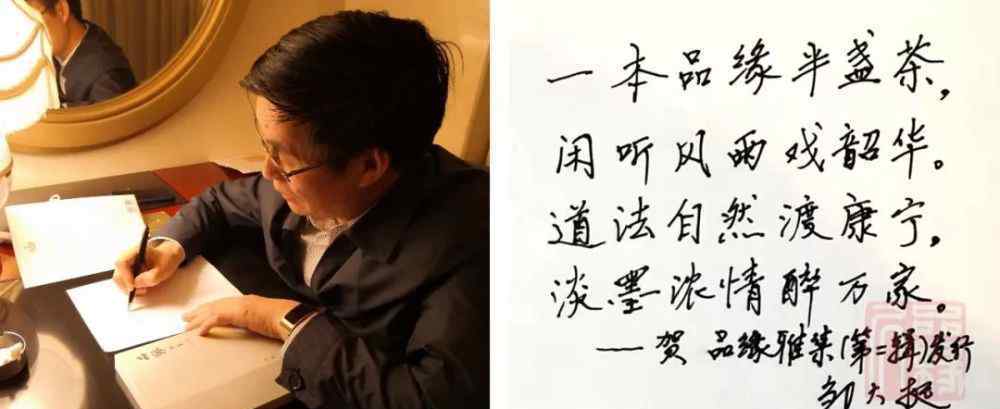 一本品缘半盏茶，
闲听风雨戏韶华。
道法自然渡康宁，
淡墨浓情醉万家。
——贺 品缘雅集(第二辑)发行
邹大挺